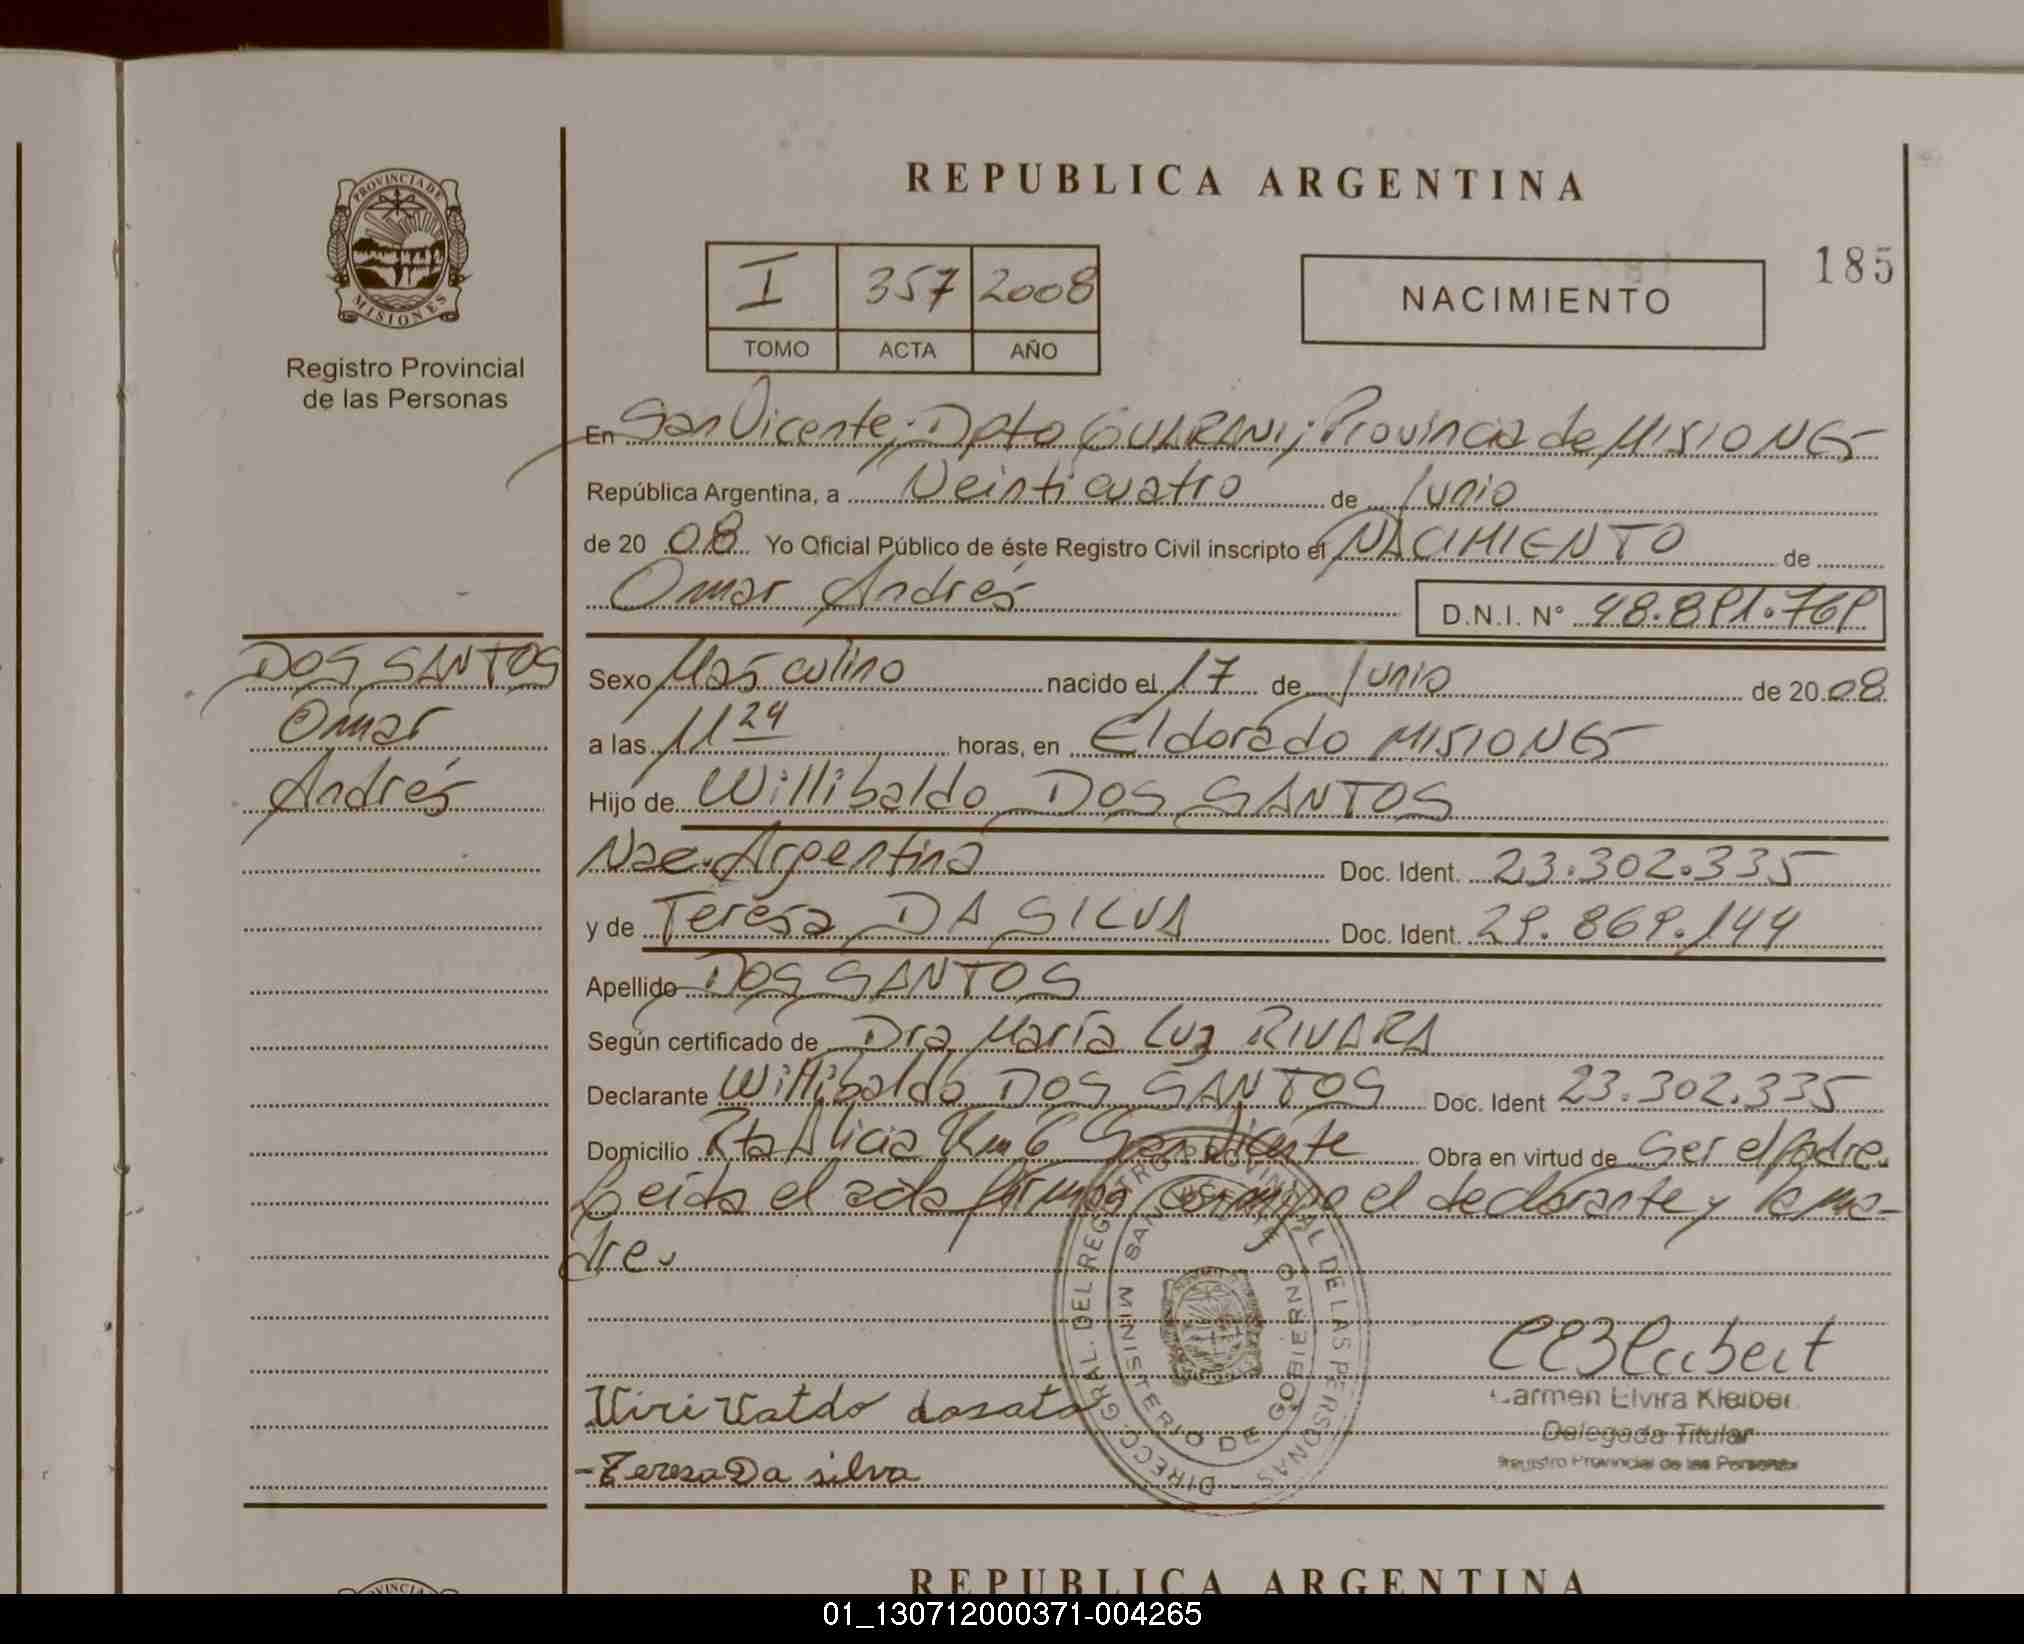 PROVINCIA DE
MISIONES
Registro Provincial
de las Personas
REPUBLICA ARGENTINA
I 357 2008
TOMO ACTA AÑO
NACIMIENTO
185
En San Vicente, Dpto GUARANI; Provincia de MISIONES
República Argentina, a Veinticuatro de Junio
de 20 08 Yo Oficial Público de éste Registro Civil inscripto el NACIMIENTO de
Omar Andrés D.N.I. N° 48.891.769
DOS SANTOS
Omar
Andrés
Sexo Masculino nacido el 17 de Junio de 20 08
a las 11 24 horas, en Eldorado MISIONES
Hijo de Willibaldo DOS SANTOS
Nac. Argentina Doc. Ident. 23.302.335
y de Teresa DA SILVA Doc. Ident. 29.869.144
Apellido DOS SANTOS
Según certificado de Dra María Luz RIVARA
Declarante Willibaldo DOS SANTOS Doc. Ident 23.302.335
Domicilio Rta Alicia Km 6 San Vicente Obra en virtud de Ser el padre.
Leída el acta firman conmigo el declarante y la ma-
dre.
DIRECC. GRAL. DEL REGISTRO PROVINCIAL DE LAS PERSONAS
MINISTERIO DE GOBIERNO
SAN VICENTE
Carmen Elvira Kleiber
Delegada Titular
Registro Provincial de las Personas
-Teresa Da silva
REPUBLICA ARGENTINA
01_130712000371-004265